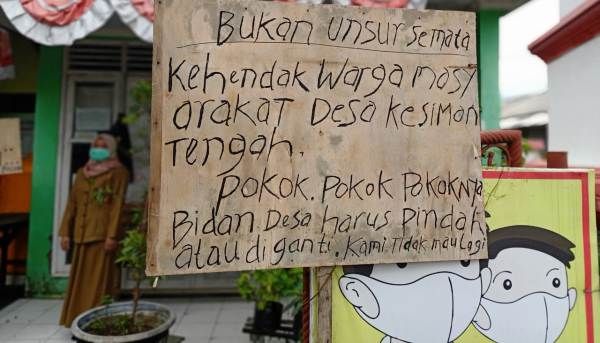 Bukan unsur semata
Kehendak Warga masy
arakat Desa kesiman
Tengah.
Pokok. Pokok Pokoknya
Bidan Desa harus Pindah
atau di ganti. Kami Tidak mau lagi